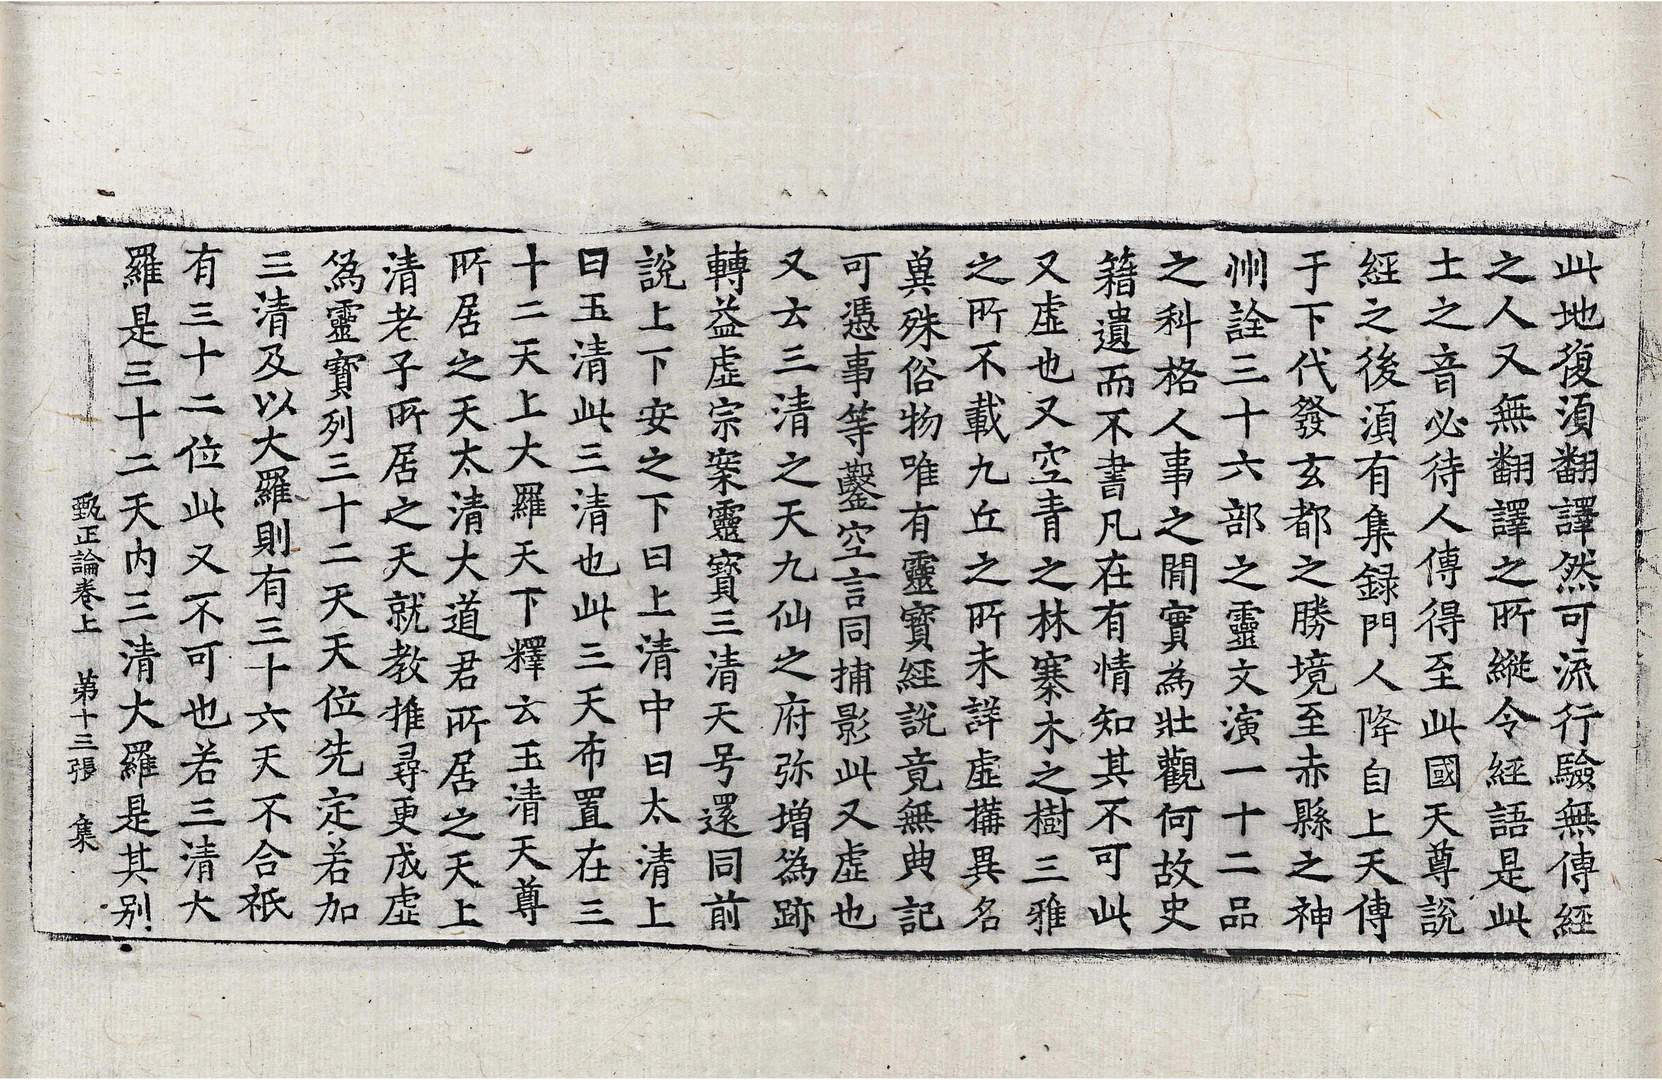 此地復湏翻譯然可流行驗無傳經
之人又無翻譯之所縱令經語是此
土之音必待人傳得至此國天尊說
經之後湏有集録門人降自上天傳
于下代發玄都之勝境至赤縣之神
州詮三十六部之靈文演一十二品
之科格人事之閒實為壯觀何故史
籍遺而不書凡在有情知其不可此
又虛也又空青之林騫木之樹三雅
之所不載九丘之所未詳虛搆異名
冀殊俗物唯有靈寶經說竟無典記
可憑事等鑿空言同捕影此又虛也
又云三清之天九仙之府弥增為跡
轉益虛宗案靈寶三清天号還同前
說上下安之下曰上清中曰太清上
曰玉清此三清也此三天布置在三
十二天上大羅天下釋云玉清天尊
所居之天太清大道君所居之天上
清老子所居之天就教推尋更成虛
為靈寶列三十二天天位先定若加
三清及以大羅則有三十六天不合祇
有三十二位此又不可也若三清大
羅是三十二天内三清大羅是其别
甄正論卷上　第十三張　集